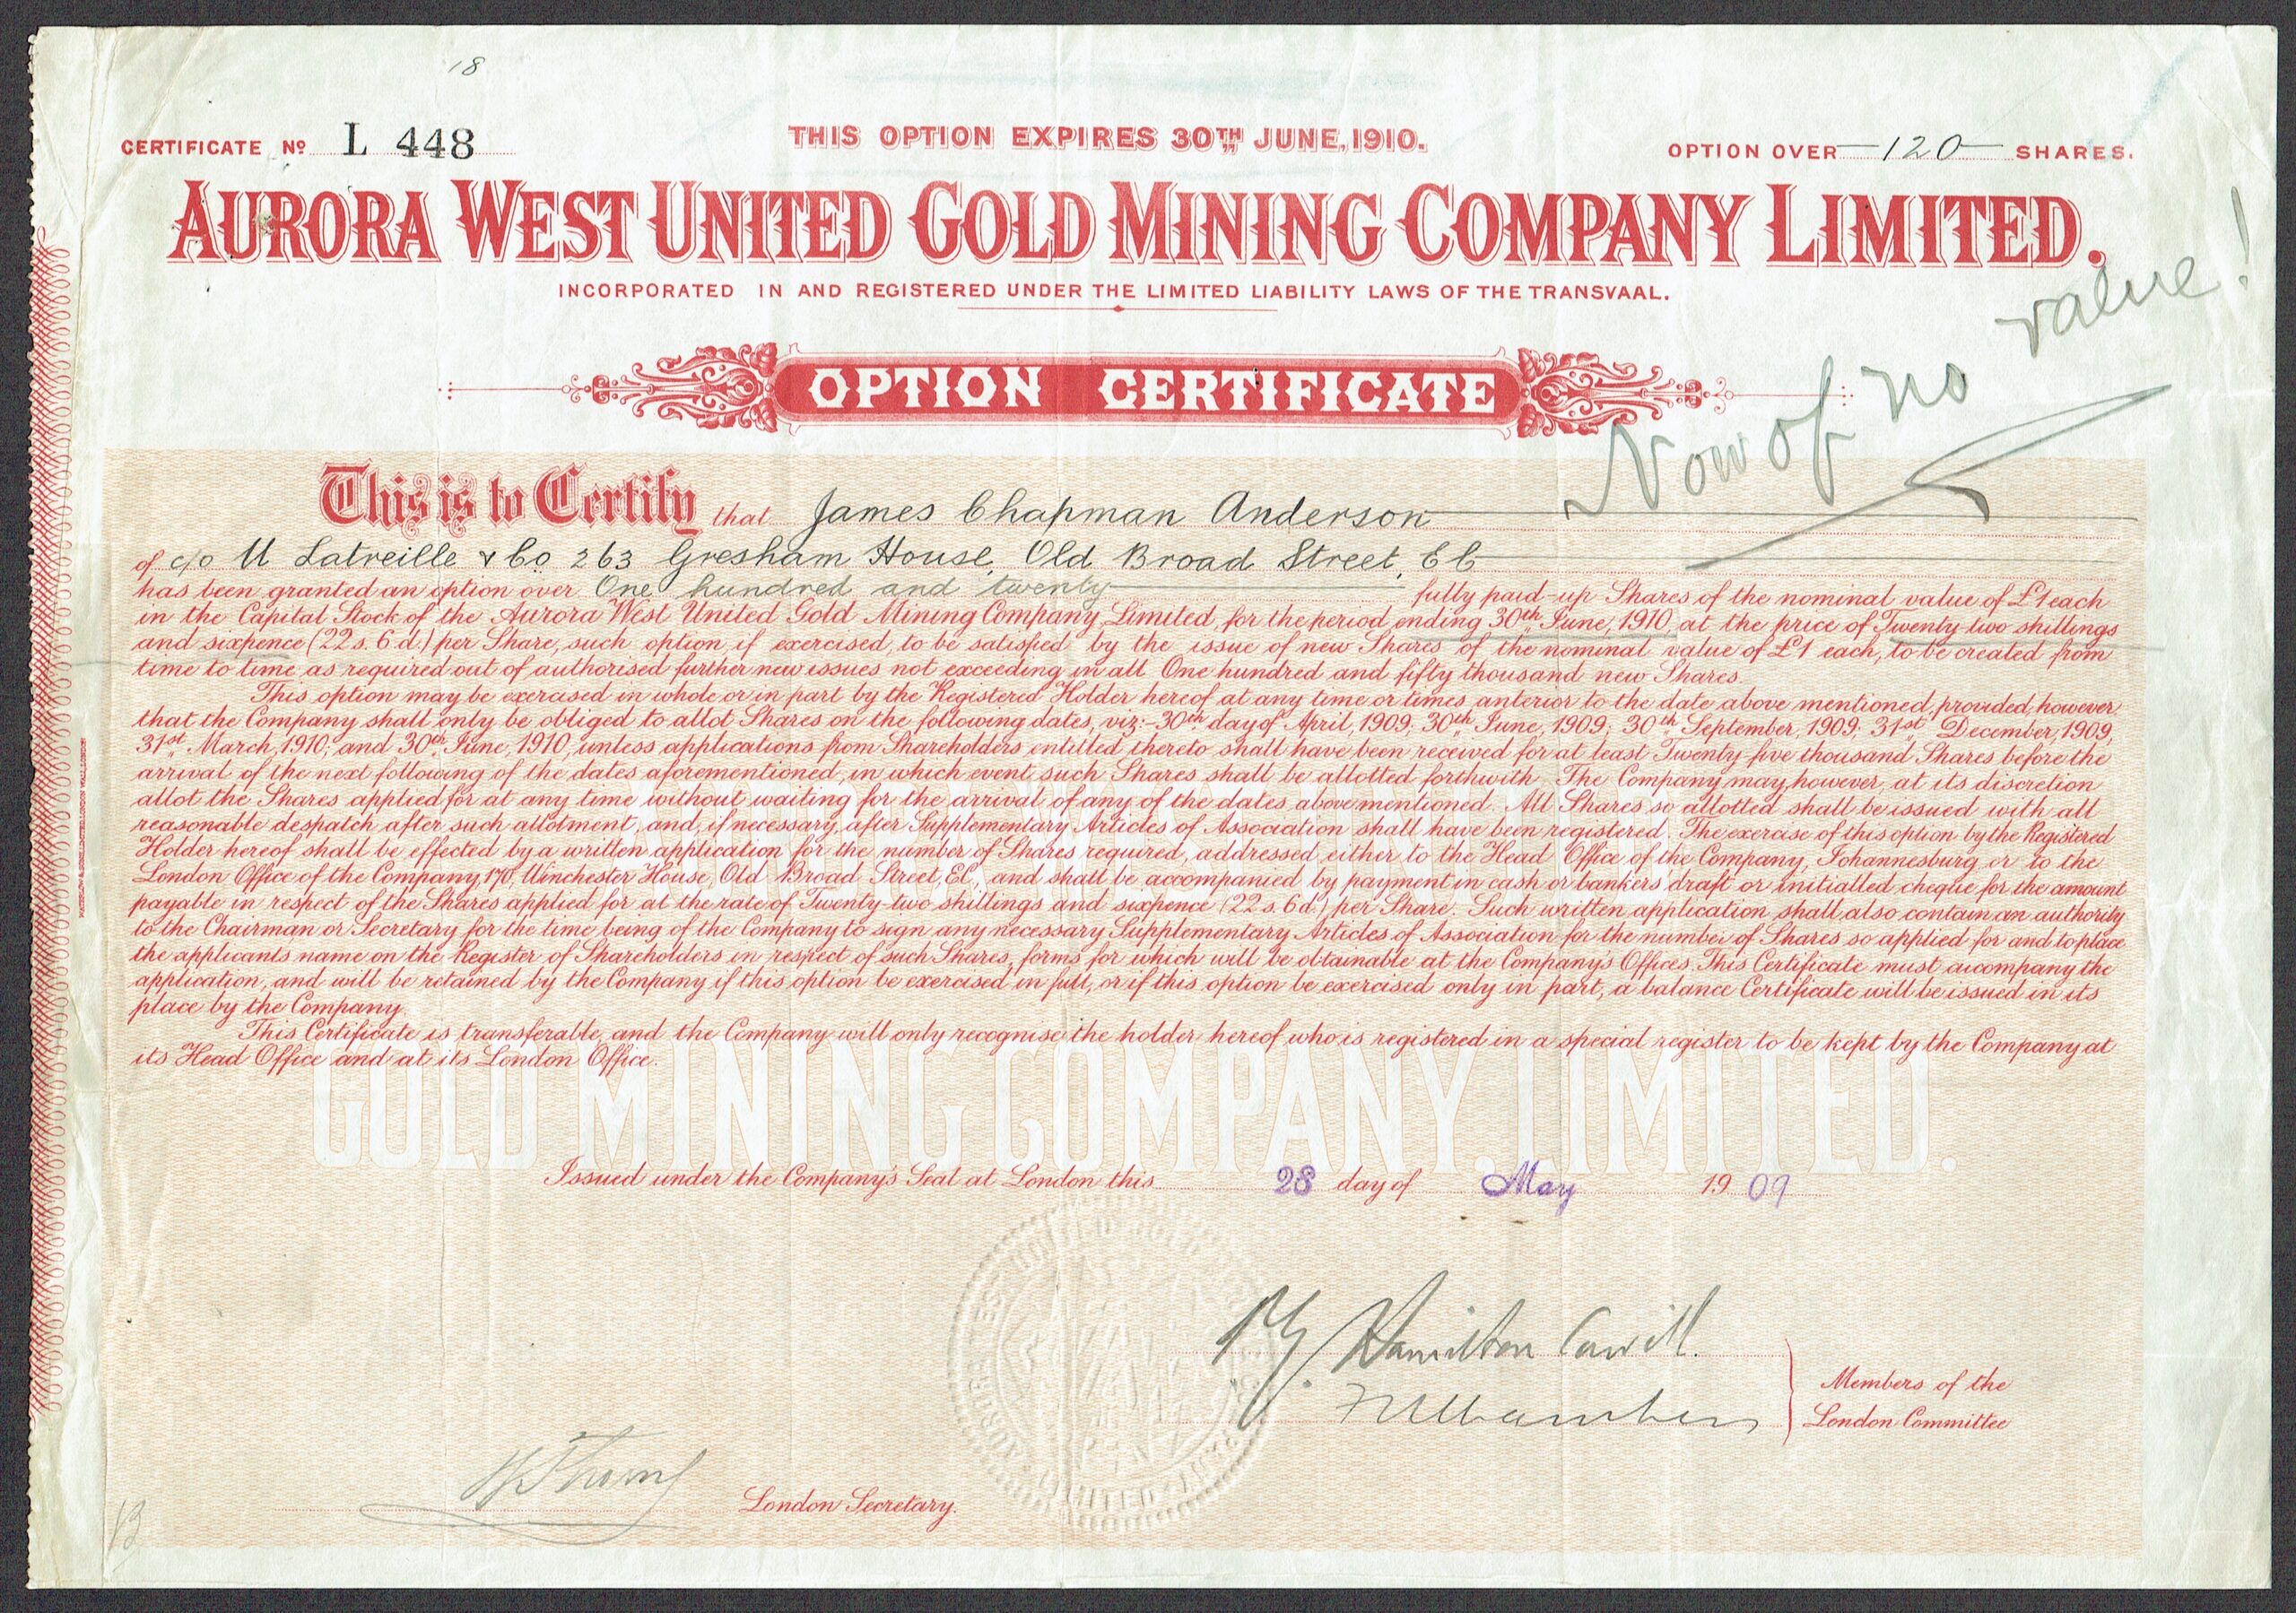 18
CERTIFICATE Nº L 448
THIS OPTION EXPIRES 30TH JUNE, 1910.
OPTION OVER 120 SHARES.
AURORA WEST UNITED GOLD MINING COMPANY LIMITED.
INCORPORATED IN AND REGISTERED UNDER THE LIMITED LIABILITY LAWS OF THE TRANSVAAL.
Now of no value!
OPTION CERTIFICATE
This is to Certify that James Chapman Anderson
of c/o M Latreille & Co 263 Gresham House, Old Broad Street, EC
has been granted an option over One hundred and twenty fully paid-up Shares of the nominal value of £1 each
in the Capital Stock of the Aurora West United Gold Mining Company, Limited, for the period ending 30th June, 1910, at the price of Twenty-two shillings
and sixpence (22s. 6d.) per Share, such option, if exercised, to be satisfied by the issue of new Shares of the nominal value of £1 each, to be created from
time to time as required out of authorised further new issues not exceeding in all One hundred and fifty thousand new Shares.
This option may be exercised in whole or in part by the Registered Holder hereof at any time or times anterior to the date above mentioned, provided, however
that the Company shall only be obliged to allot Shares on the following dates, viz:- 30th day of April, 1909; 30th June, 1909; 30th September, 1909; 31st December, 1909;
31st March, 1910; and 30th June, 1910, unless applications from Shareholders entitled thereto shall have been received for at least Twenty-five thousand Shares before the
arrival of the next following of the dates aforementioned, in which event such Shares shall be allotted forthwith. The Company may, however, at its discretion
allot the Shares applied for at any time without waiting for the arrival of any of the dates above mentioned. All Shares so allotted shall be issued with all
reasonable despatch after such allotment, and, if necessary, after Supplementary Articles of Association shall have been registered. The exercise of this option by the Registered
Holder hereof shall be effected by a written application for the number of Shares required, addressed either to the Head Office of the Company, Johannesburg or to the
London Office of the Company, 170, Winchester House, Old Broad Street, E.C., and shall be accompanied by payment in cash or bankers' draft or initialled cheque for the amount
payable in respect of the Shares applied for at the rate of Twenty-two shillings and sixpence (22s. 6d.) per Share. Such written application shall also contain an authority
to the Chairman or Secretary for the time being of the Company to sign any necessary Supplementary Articles of Association for the number of Shares so applied for and to place
the applicants name on the Register of Shareholders in respect of such Shares, forms for which will be obtainable at the Company's Offices. This Certificate must accompany the
application, and will be retained by the Company if this option be exercised in full, or if this option be exercised only in part, a balance Certificate will be issued in its
place by the Company.
This Certificate is transferable, and the Company will only recognise the holder hereof who is registered in a special register to be kept by the Company at
its Head Office and at its London Office.
GOLD MINING COMPANY, LIMITED.
Issued under the Company's Seal at London this 28 day of May 1909
Hamilton
Members of the
London Committee
London Secretary.